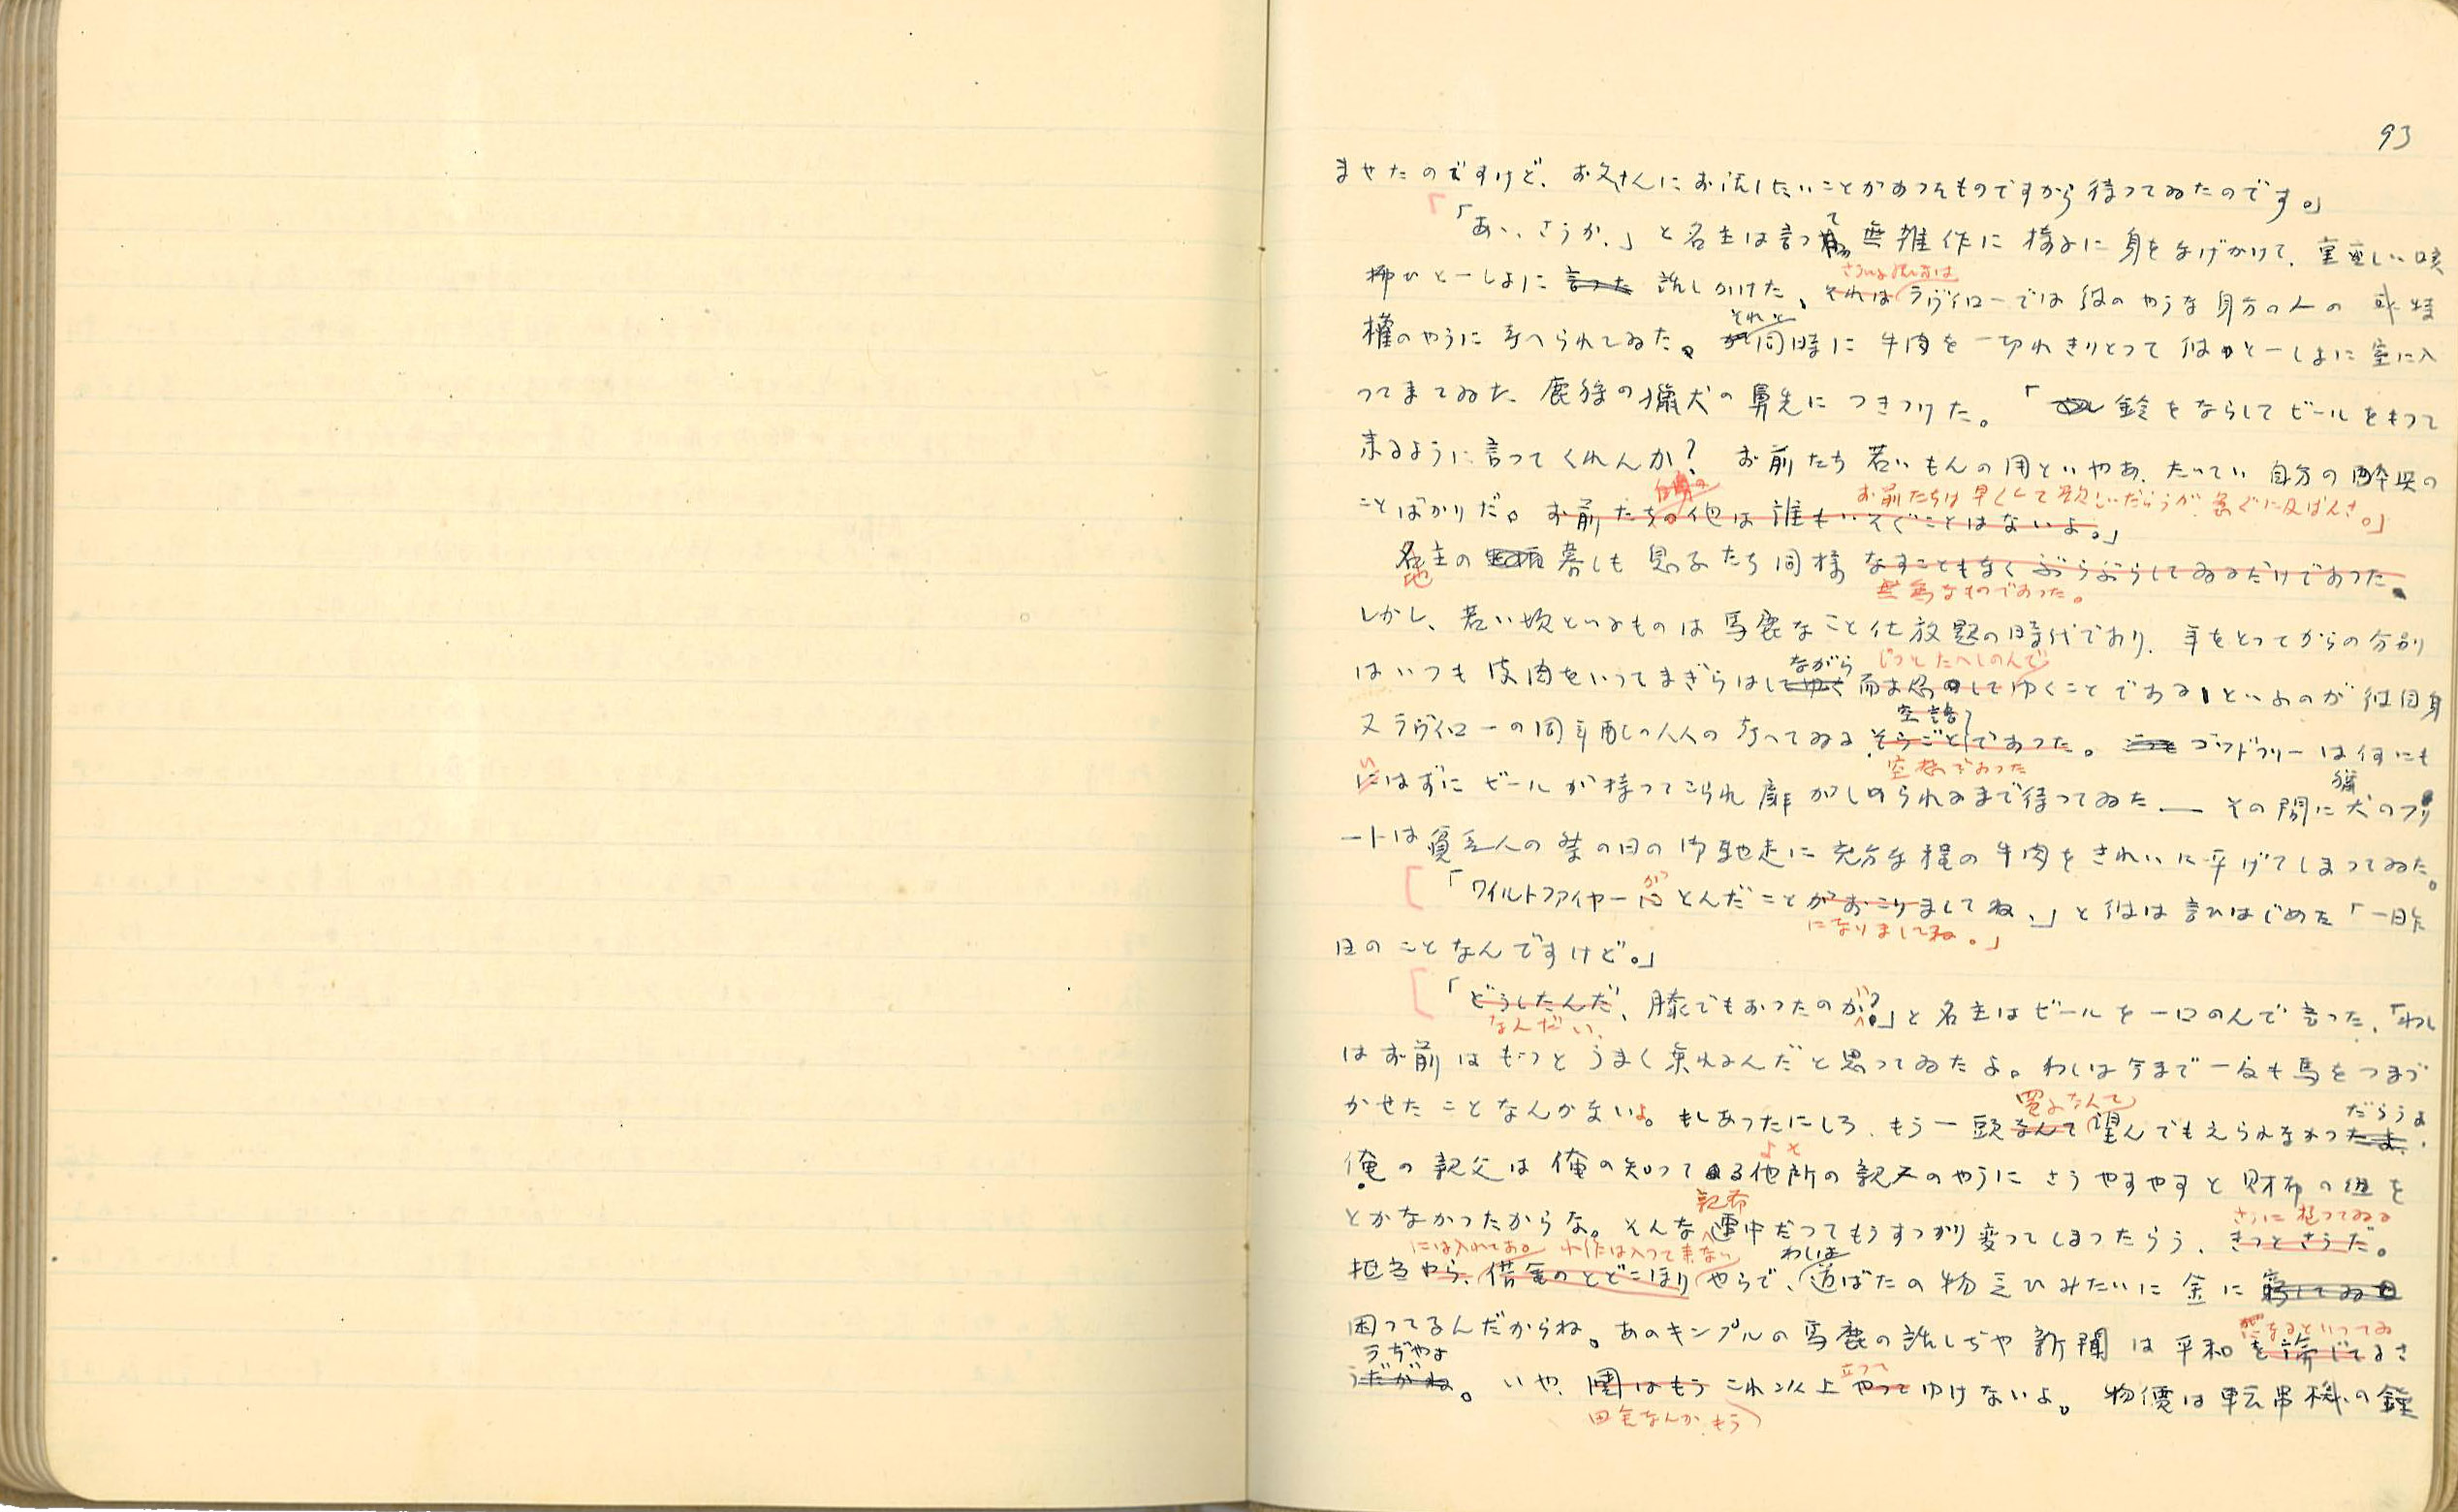 93
ませたのですけど、お父さんにお話したいことがあつたものですから待つてゐたのです。」
「あゝ、さうか、」と名主は言つて無雑作に椅子に身をなげかけて、重々しい咳
拂ひと一しよに言つた 話しかけた、それはラヴイローでは彼のやうな身分の人の 或特
さういふ話し方は
それと
権のやうに考へられてゐた。が同時に 牛肉を一切れきりとつて彼と一しよに室に入
つてきてゐた 鹿狩の獵犬の鼻先につきつけた。「鈴をならしてビールをもつて
来るように言つてくれんか? お前たち若いもんの用といやあ、たいてい自分の酔興の
自身の
お前たちは早くして欲しいだらうが、急ぐに及ばんさ。」
ことばかりだ。お前たちの他は誰もいそぐことはないよ。」
名主の 暮しも息子たち同様なすこともなくぶらぶらしてゐるだけであつた。
他
無為なものであつた。
しかし、若い頃といふものは馬鹿なこと仕放題の時代であり、年をとつてからの分別
ながら じつとたへしのんで
はいつも皮肉をいつてまぎらはしてゆく 而も忍してゆくことである、といふのが彼自身
空語
又ラヴイローの同年配の人々の考へてゐるそらごとであつた。ゴッドフリーは何にも
空想であつた
い
にはずにビールが持つてこられ扉がしめられるまで待つてゐた——その間に犬のフリ
獵
ートは貧乏人の祭の日の御馳走に充分な程の牛肉をきれいに平げてしまつてゐた。
が
「ワイルドファイヤーにとんだことがおこりましてね、」と彼は言ひはじめた「一昨
になりましてね。」
日のことなんですけど。」
「どうしたんだ、膝でもおつたのか?」と名主はビールを一口のんで言つた、「わし
なんだい、
はお前はもつとうまく乗れるんだと思つてゐたよ。わしは今まで一度も馬をつまづ
だらうよ
かせたことなんかないよ。もしあつたにしろ、もう一頭なんて望んでもえられなかつたよ、
よそ
俺の親父は俺の知つてる他所の親父のやうにさうやすやすと財布の紐を
親爺
とかなかつたからな。そんな連中だつてもうすつかり変つてしまつたらう、きつとさうだ。
さうに極つてゐる
には入れてある わ作は入つて来ない わしは
抵当やら、借金のとどこほりやらで、道ばたの物乞ひみたいに金に窮してゐる
困つてるんだからね。あのキンブルの馬鹿の話しぢや新聞は平和を論じてるさ
になるといつてゐ
うぢやよ
うだがね。いや、国はもうこれ以上やつてゆけないよ。物價は転串機の錘
立つて
田舎なんかもう